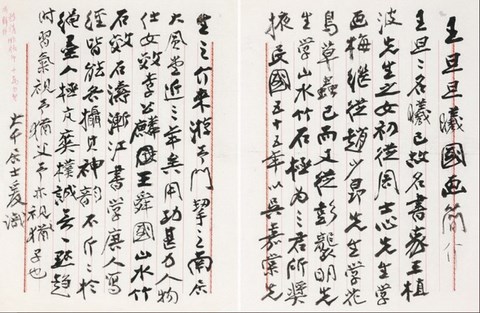 王旦旦曦國画簡介
王旦旦名曦已故名書家王植
波先生之女初從周士心先生學
画梅繼從趙少昂先生學花
鳥草蟲已而又從彭襲明先
生學山水竹石極為三君所獎
掖民國五十五年以吳嘉棠先
生之介來游予門挈之南
大風堂近三年矣用功甚力人物
仕女效李公麟王舜國山水竹
石效石濤漸江書學唐人寫
經皆能各攝其神韵不斤斤於
繩墨人極亢爽樸誠無一點趨
時習氣視予猶父予亦視猶子也
大千居士爰識